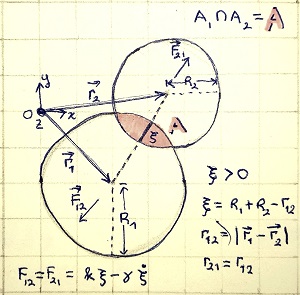 A₁ ∩ A₂ = A
F⃗₂₁
y
r⃗₂
R₂
0
z
x
ξ
A
r⃗₁
F⃗₁₂
R₁
ξ > 0
ξ = R₁ + R₂ - r₁₂
r₁₂ = |r⃗₁ - r⃗₂|
r₂₁ = r₁₂
F₁₂ = F₂₁ = k ξ - γ ξ̇